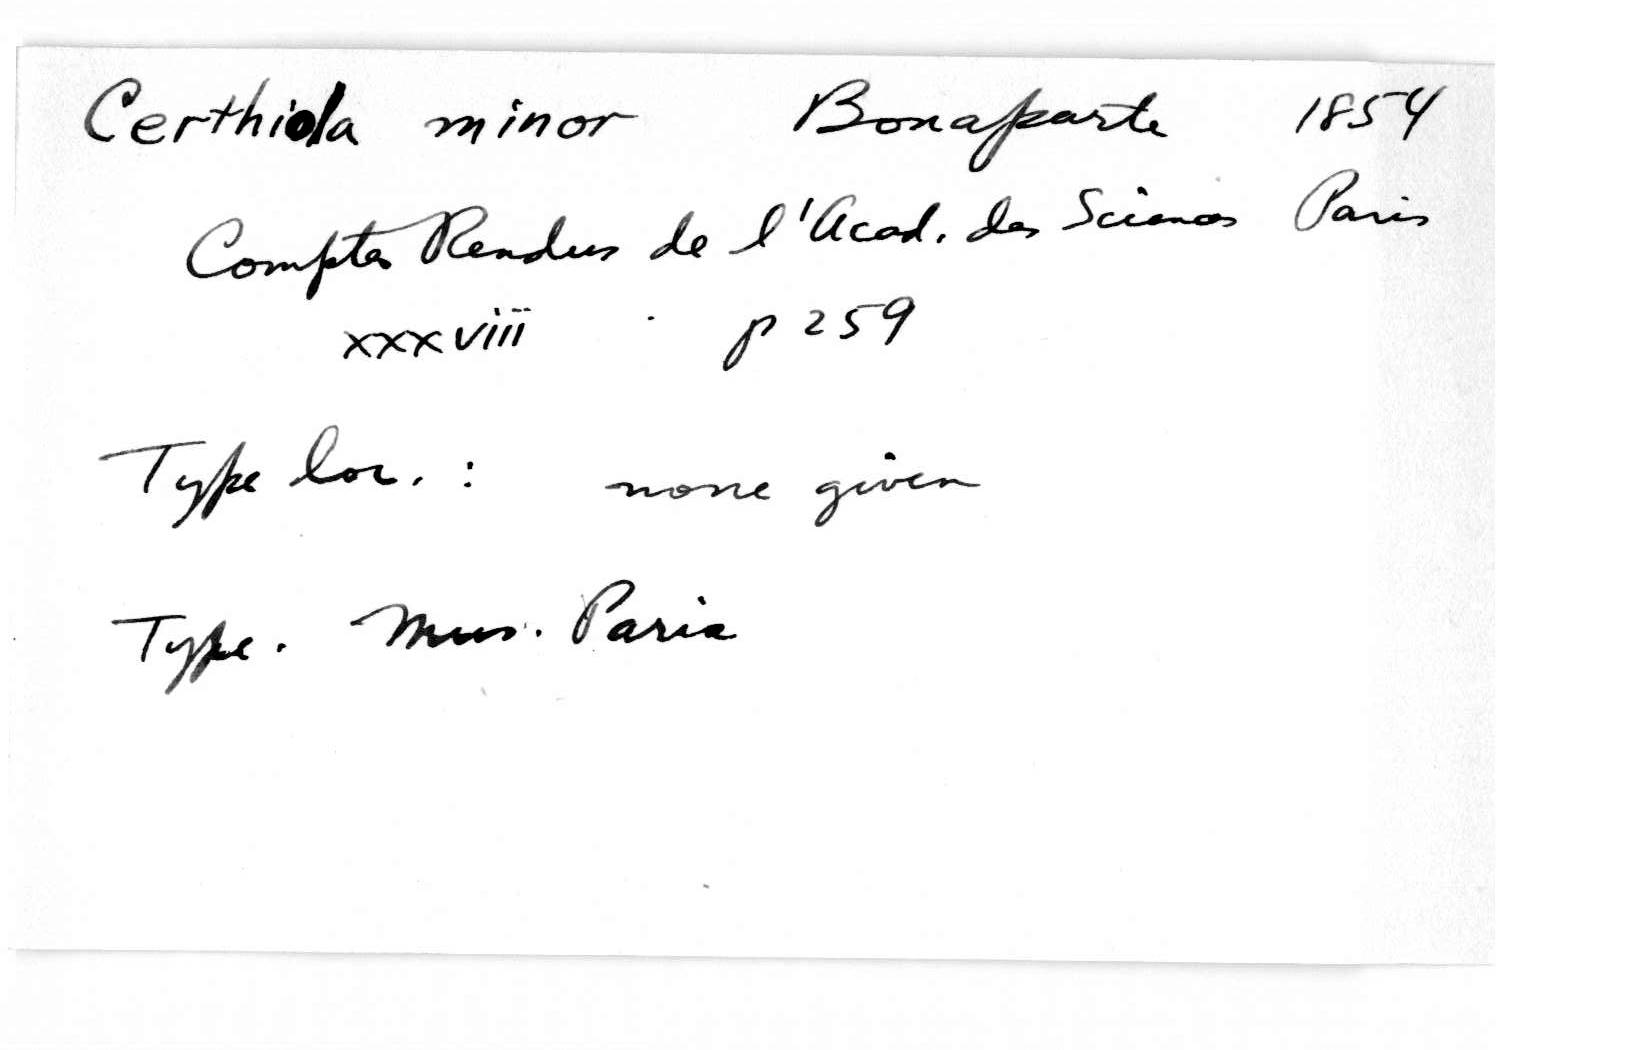 Certhiola minor Bonaparte 1854
Comptes Rendus de l'Acad. des Sciences Paris
xxxviii p 259
Type loc. : none given
Type. Mus. Paris